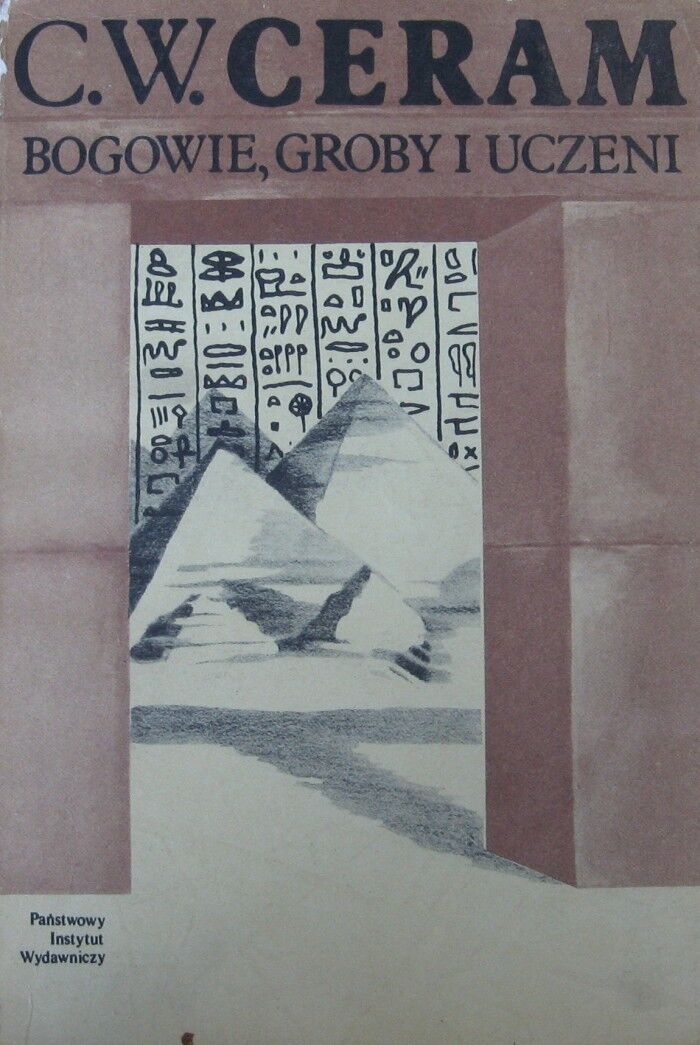 C.W. CERAM
BOGOWIE, GROBY I UCZENI
Państwowy
Instytut
Wydawniczy